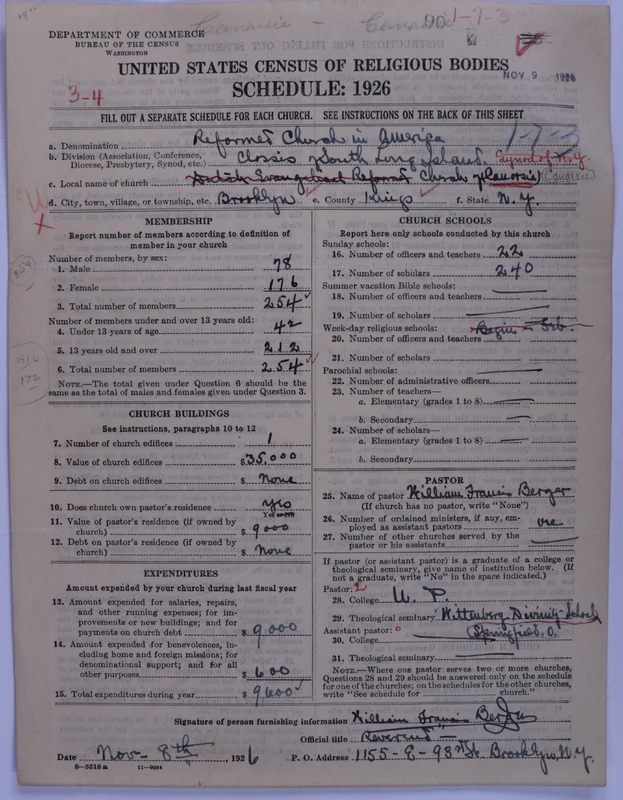 Canarsie - Canarsie
90 1-7-3
DEPARTMENT OF COMMERCE
BUREAU OF THE CENSUS
WASHINGTON
UNITED STATES CENSUS OF RELIGIOUS BODIES
NOV 9 1926
3-4
SCHEDULE: 1926
FILL OUT A SEPARATE SCHEDULE FOR EACH CHURCH. SEE INSTRUCTIONS ON THE BACK OF THIS SHEET
1-7-3
a. Denomination Reformed Church in America
b. Division (Association, Conference, Diocese, Presbytery, Synod, etc.) Classis of South Long Island. Synod of N.Y.
c. Local name of church Evangelical Reformed Church of Canarsie (Canarsie)
d. City, town, village, or township, etc. Brooklyn e. County Kings f. State N.Y.
MEMBERSHIP
Report number of members according to definition of
member in your church
Number of members, by sex:
1. Male 78
2. Female 176
3. Total number of members 254
Number of members under and over 13 years old:
4. Under 13 years of age 42
5. 13 years old and over 212
6. Total number of members 254
NOTE.—The total given under Question 6 should be the
same as the total of males and females given under Question 3.
254
1916
172
CHURCH BUILDINGS
See instructions, paragraphs 10 to 12
7. Number of church edifices 1
8. Value of church edifices $35,000
9. Debt on church edifices $ None
10. Does church own pastor's residence? Yes
Yes or No
11. Value of pastor's residence (if owned by
church) $ 9000
12. Debt on pastor's residence (if owned by
church) $ None
EXPENDITURES
Amount expended by your church during last fiscal year
13. Amount expended for salaries, repairs,
and other running expenses; for im-
provements or new buildings; and for
payments on church debt $ 9,000
14. Amount expended for benevolences, in-
cluding home and foreign missions; for
denominational support; and for all
other purposes $ 600
15. Total expenditures during year $ 9600
CHURCH SCHOOLS
Report here only schools conducted by this church
Sunday schools:
16. Number of officers and teachers 22
17. Number of scholars 240
Summer vacation Bible schools:
18. Number of officers and teachers
19. Number of scholars
Week-day religious schools: Begin - Feb.
20. Number of officers and teachers
21. Number of scholars
Parochial schools:
22. Number of administrative officers
23. Number of teachers—
a. Elementary (grades 1 to 8)
b. Secondary
24. Number of scholars—
a. Elementary (grades 1 to 8)
b. Secondary
PASTOR
25. Name of pastor William Francis Berger
(If church has no pastor, write "None")
26. Number of ordained ministers, if any, em-
ployed as assistant pastors one
27. Number of other churches served by the
pastor or his assistants
If pastor (or assistant pastor) is a graduate of a college or
theological seminary, give name of institution below. (If
not a graduate, write "No" in the space indicated.)
Pastor: 2
28. College U. P.
29. Theological seminary Wittenberg Divinity School
Assistant pastor: 0 Springfield, O.
30. College
31. Theological seminary
NOTE.—Where one pastor serves two or more churches,
Questions 28 and 29 should be answered only on the schedule
for one of the churches; on the schedules for the other churches,
write "See schedule for church."
Signature of person furnishing information William Francis Berger
Official title Reverend
Date Nov- 8th, 1926 P. O. Address 1155-E-93rd St. Brooklyn, N.Y.
8-5518a 11-9024